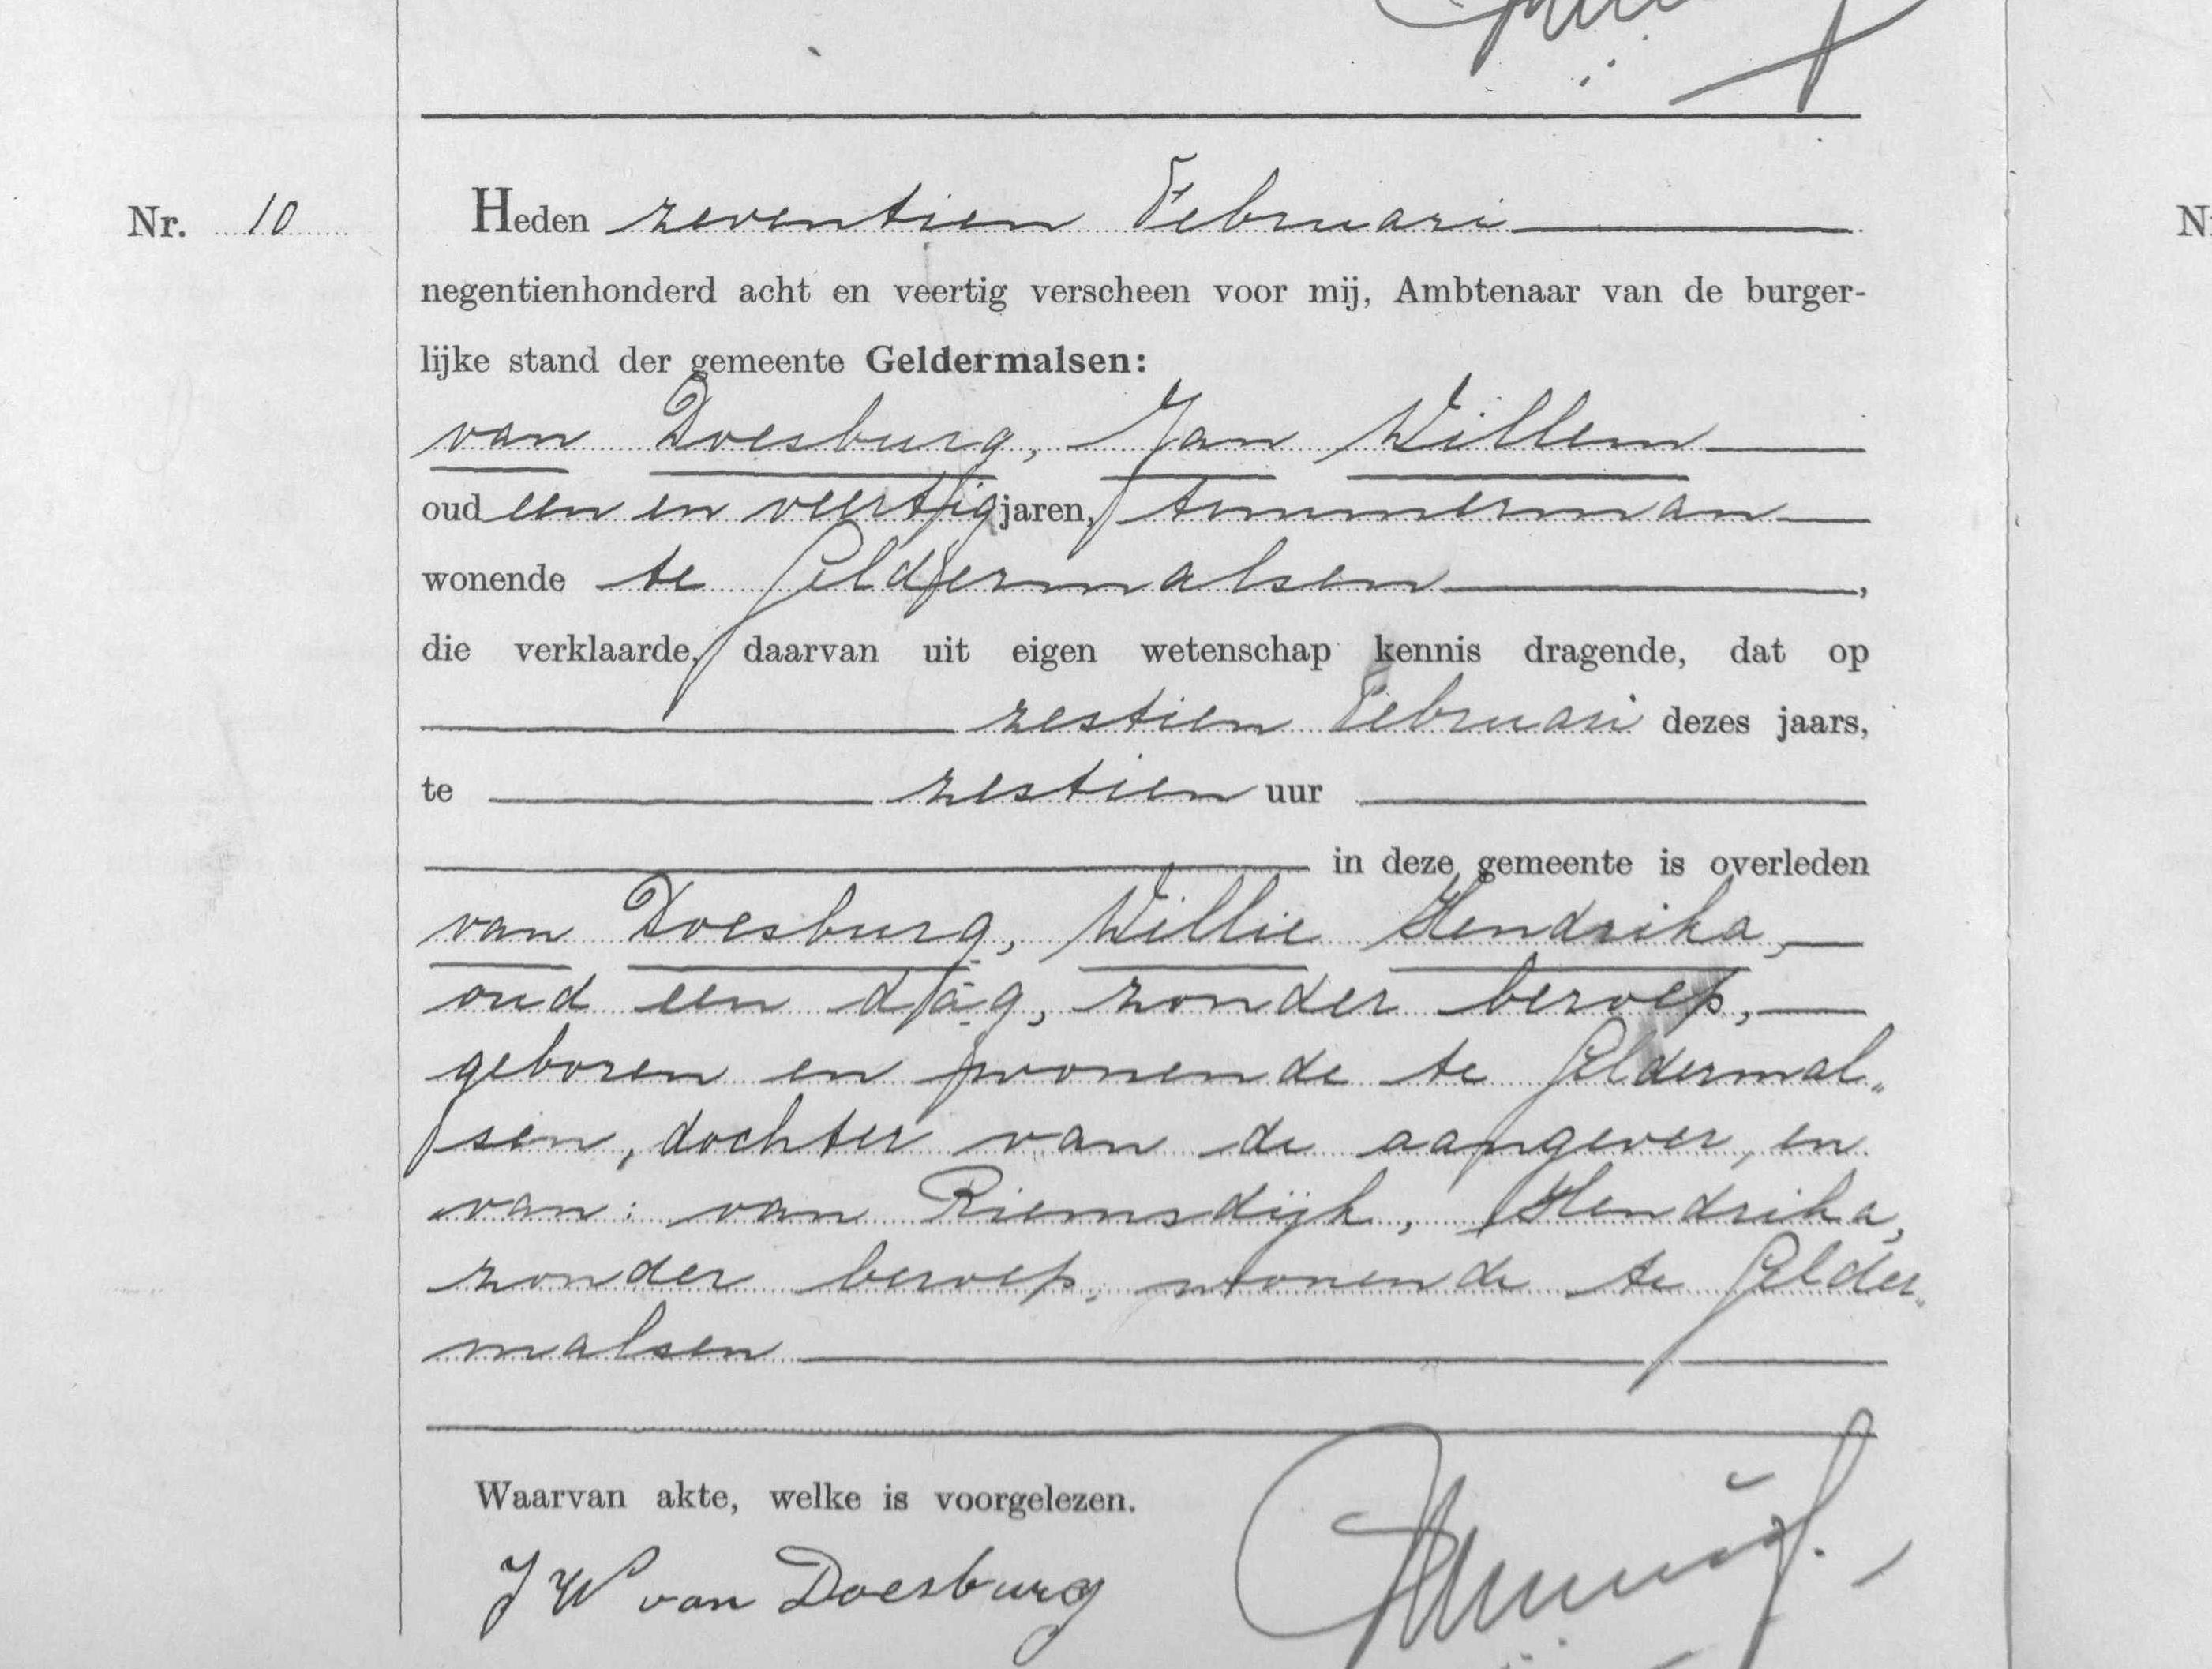 Nr. 10
Heden zeventien Februari
negentienhonderd acht en veertig verscheen voor mij, Ambtenaar van de burger-
lijke stand der gemeente Geldermalsen:
van Doesburg, Jan Willem
oud een en veertig jaren, timmerman
wonende te Geldermalsen,
die verklaarde, daarvan uit eigen wetenschap kennis dragende, dat op
zestien Februari dezes jaars,
te zestien uur
in deze gemeente is overleden
van Doesburg, Willie Hendrika,
oud een dag, zonder beroep,
geboren en wonende te Geldermal„
sen, dochter van de aangever, en
van: van Riemsdijk, Hendrika,
zonder beroep, wonende te Gelder„
malsen
Waarvan akte, welke is voorgelezen.
J W van Doesburg